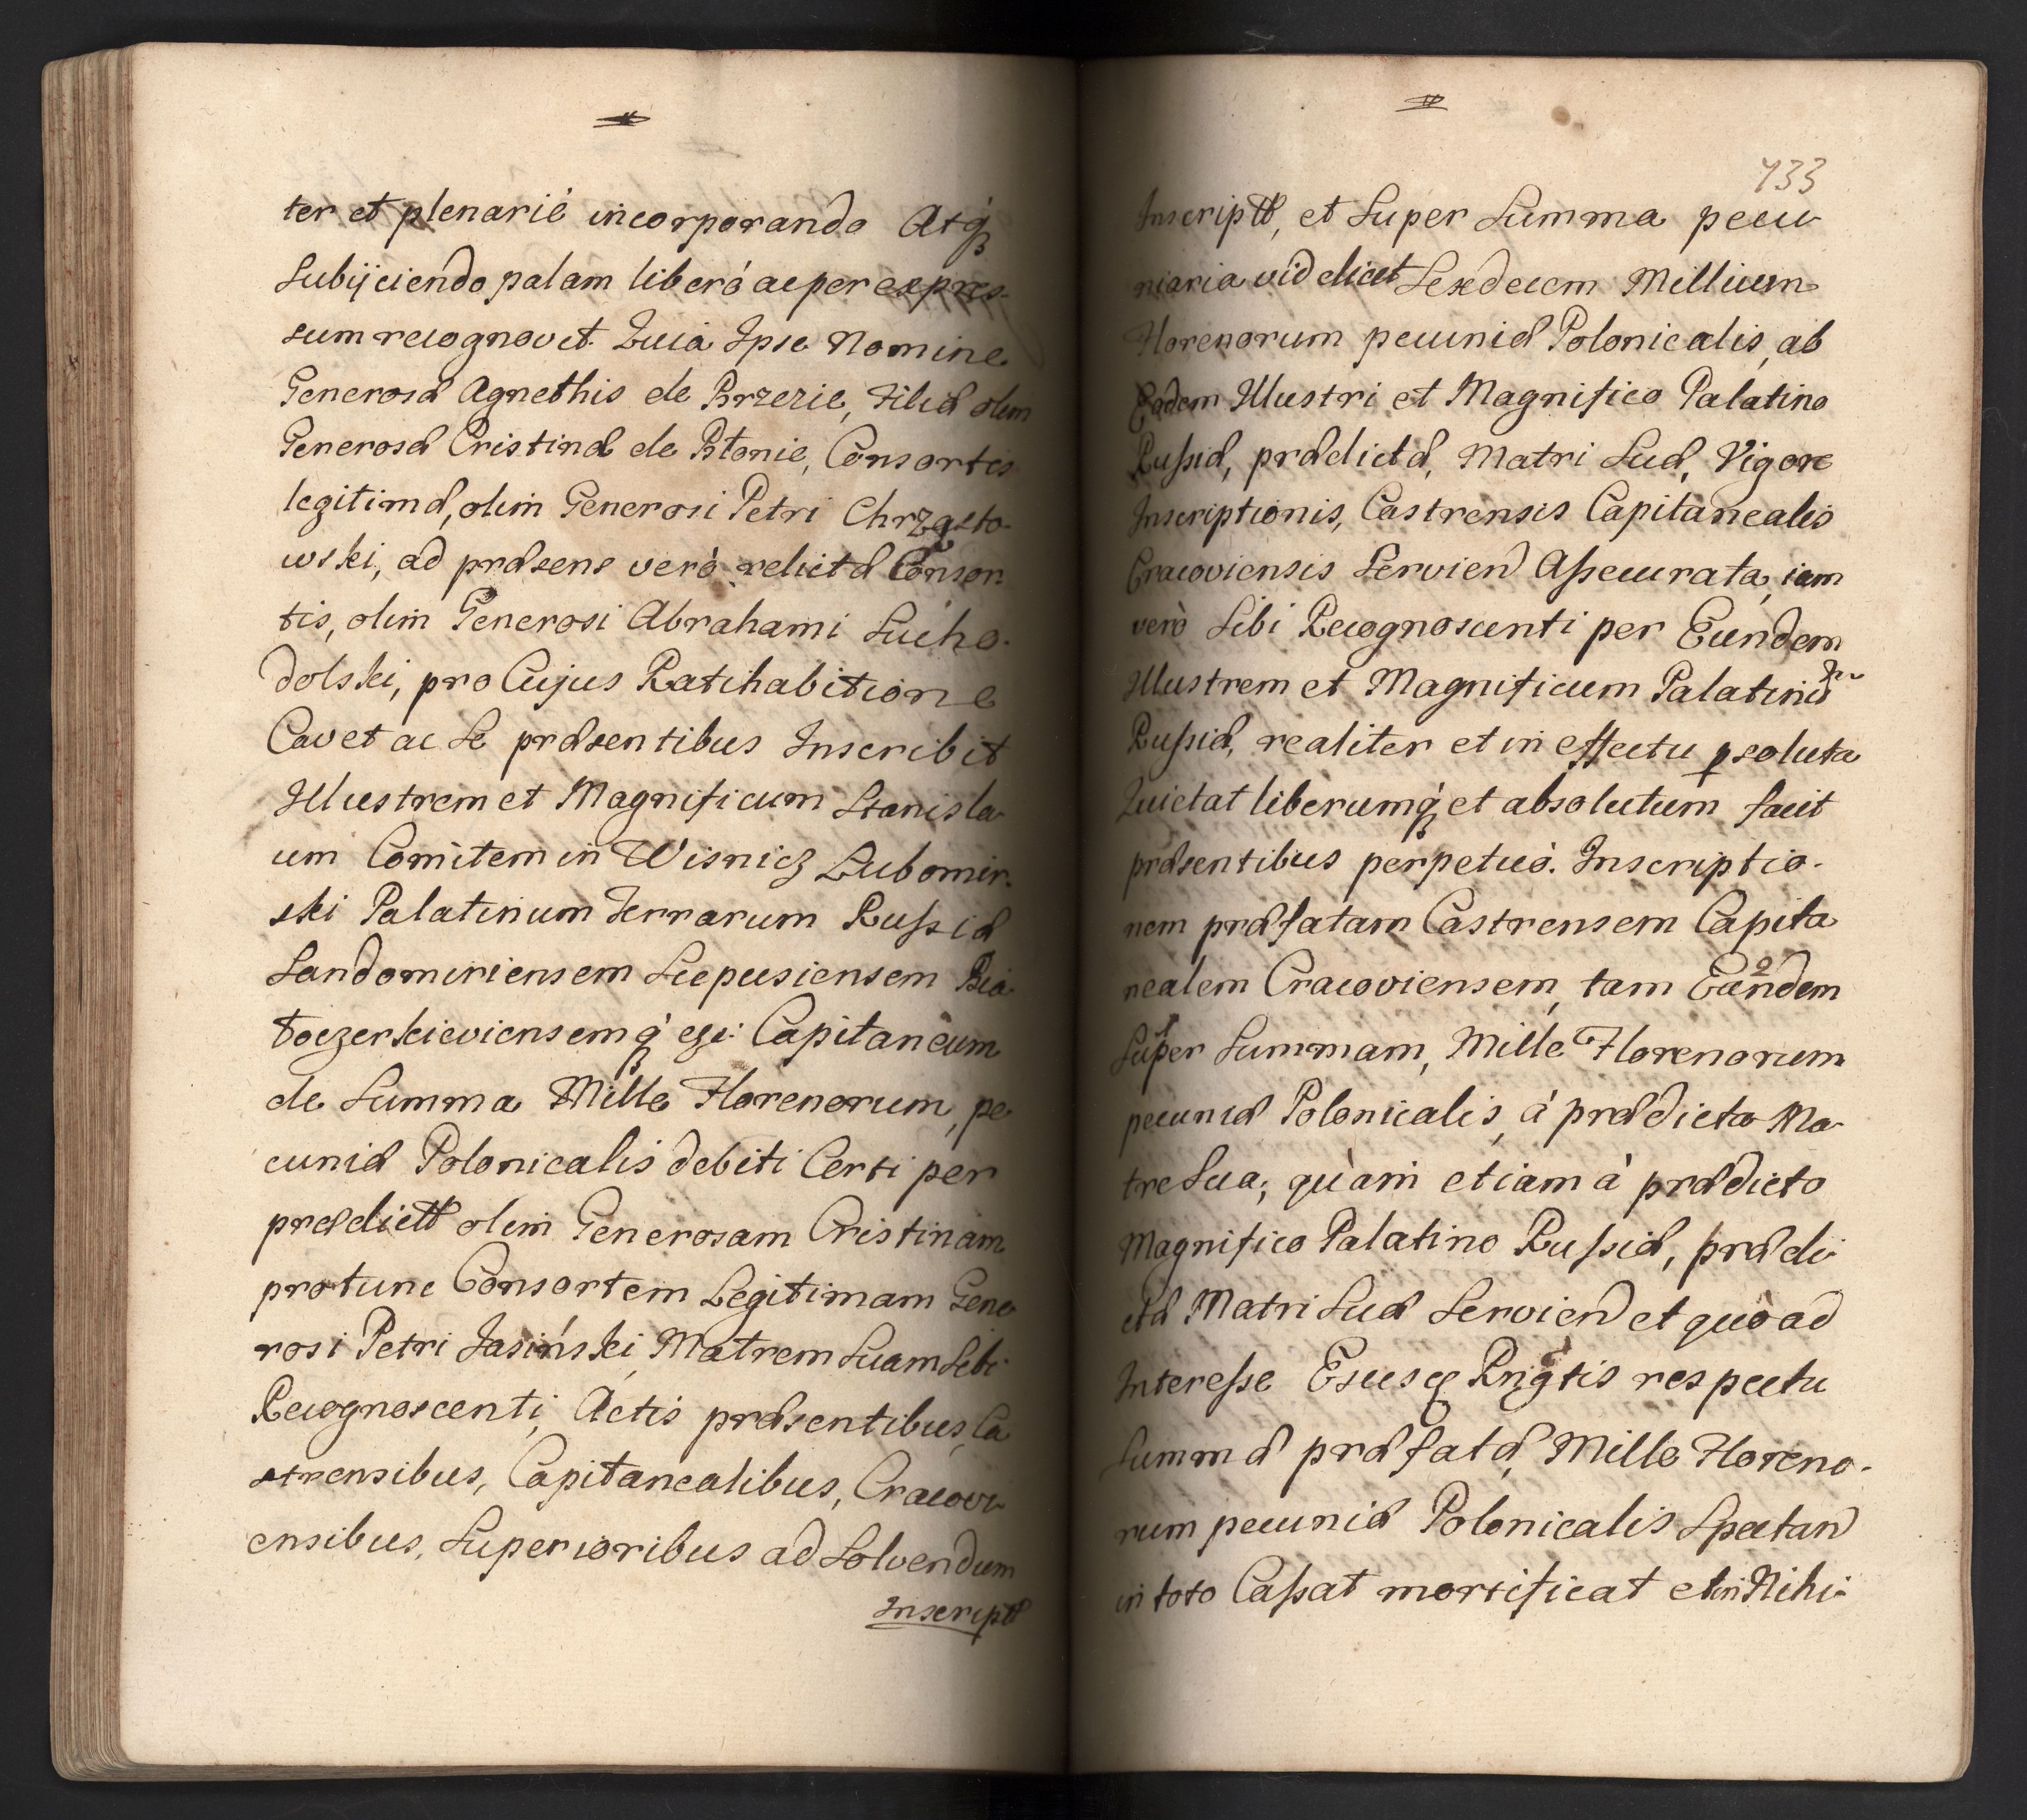 ter et plenariè incorporando Atq́
Subijciendo palam liberè ac per expres-
sum recognovit. Quia Ipse Nomine
Generosæ Agnethis de Brzezie, Filiæ olim
Generosæ Cristinæ de Błonie, Consortis
legitimæ, olim Generosi Petri Chrząsto-
wski, ad præsens verò relictæ Conson
tis, olim Generosi Abrahami Sucho-
dolski, pro Cujus Ratihabitione
Cavet ac Se præsentibus Inscribit
Illustrem et Magnificum Stanisla
um Comitem in Wisnicz Lubomir-
ski Palatinum Terrarum Russiæ
Sandomiriensem Scepusiensem Bia
łoczerkieviensemq́ etc: Capitaneum
de Summa Mille Florenorum, pe
cuniæ Polonicalis debiti Certi per
prædictt olim Generosam Cristinam
protunc Consortem Legitimam Gene
rosi Petri Jasiński, Matrem Suam Sibi
Recognoscenti, Actis præsentibus Ca
strensibus, Capitanealibus, Cracovi
ensibus, Superioribus ad Solvendum
Inscriptt
733
Inscriptt, et Super Summa pecu
niaria videlicet Sexdecem Millium
Florenorum pecuniæ Polonicalis, ab
Eodem Illustri et Magnifico Palatino
Russiæ, prædictæ, Matri Suæ, Vigore
Inscriptionis, Castrensis Capitanealis
Cracoviensis Servien Assecurata, iam
verò Sibi Recognoscenti per Eundem
Illustrem et Magnificum Palatinũ
Russiæ, realiter et in effectu psoluta
Quietat liberumq́ et absolutum facit
præsentibus perpetuò. Inscriptio-
nem præfatam Castrensem Capita
nealem Cracoviensem, tam Eandem
Super Summam, Mille Florenorum
pecuniæ Polonicalis, à prædicta Ma
tre Sua; quàm etiam à prædicto
Magnifico Palatino Russiæ, prædi
ctæ Matri Suæ Servien et quò ad
Interesse Ejusq Rngtis respectu
Summæ præfatæ, Mille Floreno-
rum pecuniæ Polonicalis Spectan
in toto Cassat mortificat et in Nihi-